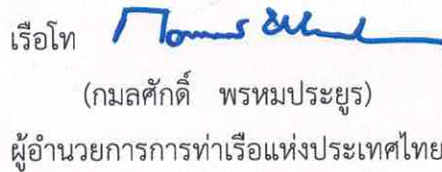 เรือโท
(กมลศักดิ์ พรหมประยูร)
ผู้อำนวยการการท่าเรือแห่งประเทศไทย